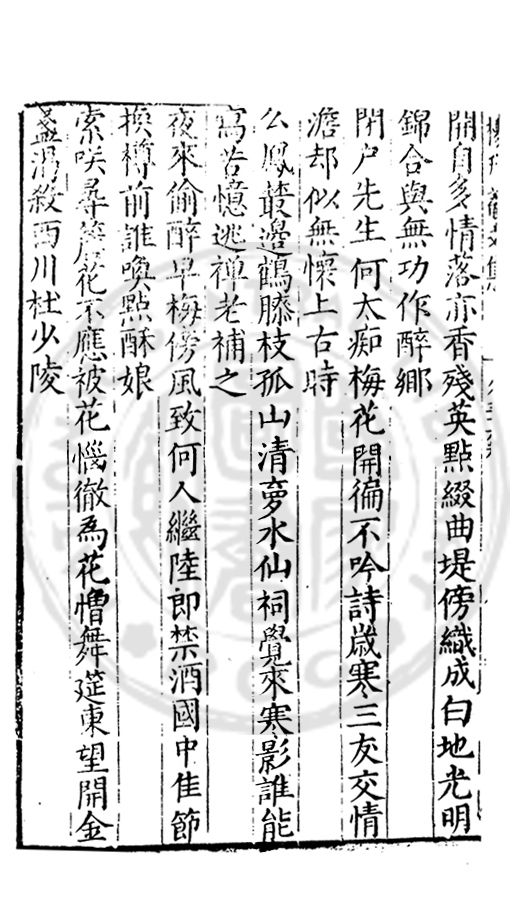 開自多情落亦香殘英點綴曲堤傍織成白地光明
錦合與無功作醉鄉
閉户先生何太痴梅花開徧不吟詩歲寒三友交情
澹却似無懷上古時
么鳳叢邊鶴膝枝孤山清夢水仙祠覺來寒影誰能
寫苦憶逃禪老補之
夜來偷醉早梅傍風致何人繼陸郎禁酒國中佳節
換樽前誰喚點酥娘
索咲尋簷花不應被花惱徹為花憎舞筵東望開金
盞渴殺西川杜少陵